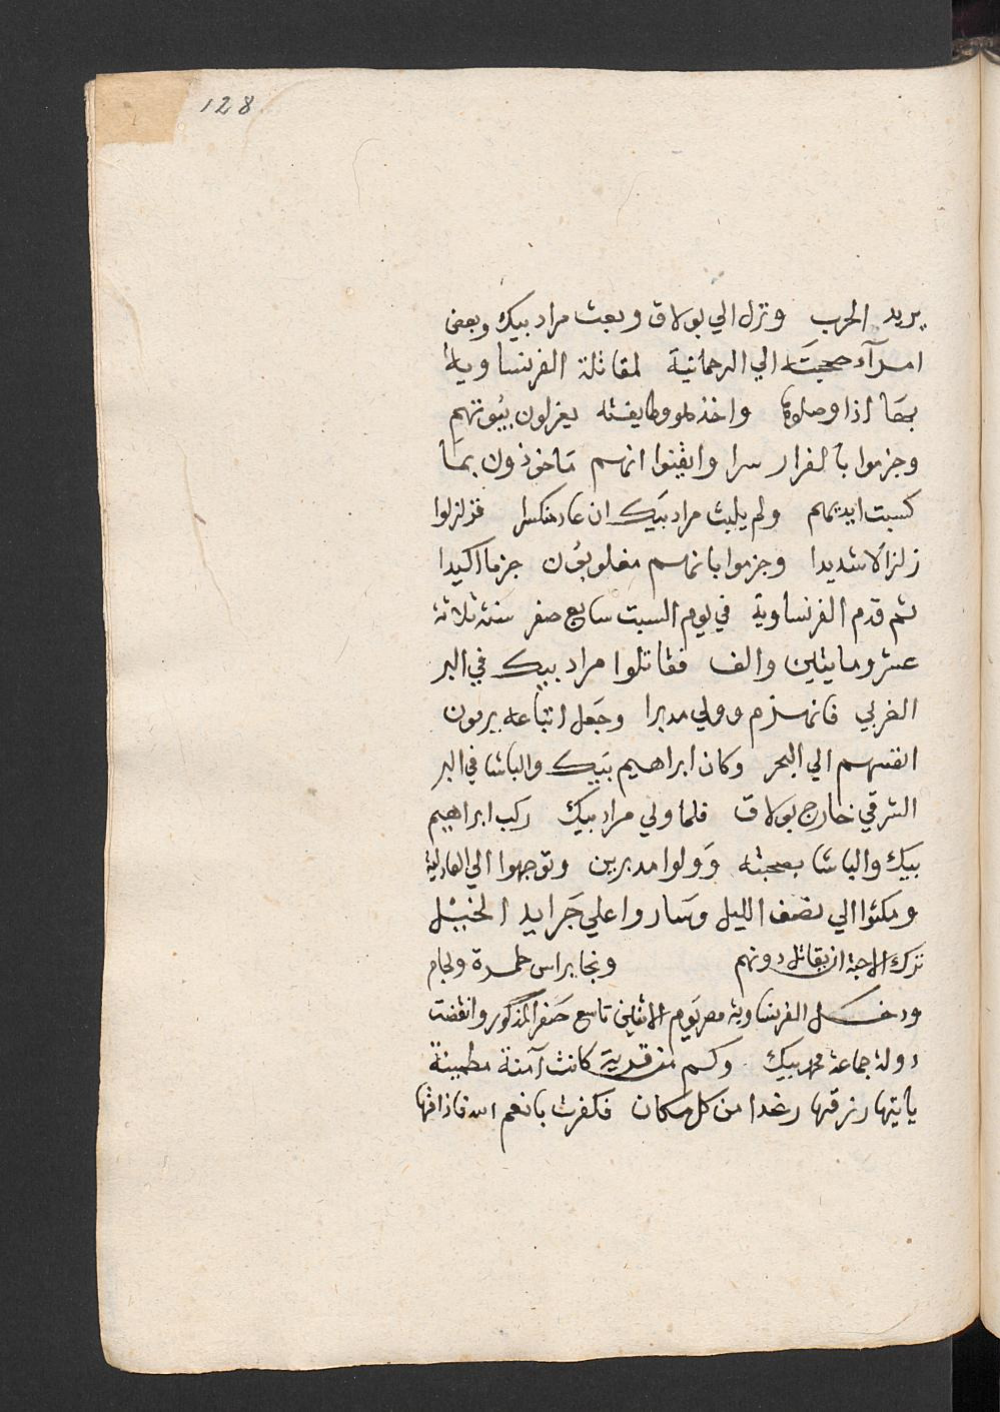 128
يريد الحرب ونزل الي بولاق وبعث مراد بيك وبعض
امرآء صحبته الي الرحمانية لمقاتلة الفرنساوية
بها اذا وصلوها واخذ هو وطايفته يعزلون بيُوتهم
وجزموا بالفرار سرا وايقنوا انهم مَاخوذون بمَا
كسبت ايديهم ولم يلبث مراد بَيك ان عاد منكسرا فزلزلوا
زلزالا شديدا وجزموا بانهم مغلوبوُن جزما اكيدا
ثم قدم الفرنساوية في يوم السبت سابع صفر سنة ثلاثة
عشر ومايتين والف فقاتلوا مراد بيك في البر
الغربي فانهزم وولي مدبرا وجَعل اتباعه يرمون
انفسهم الي البحر وكان ابراهيم بَيك والباشا في البر
الشرقي خارج بولاق فلما ولي مراد بيك ركب ابراهيم
بيك والباشا بصحبته وَولوا مدبرين وتوجهوا الي العادلية
ومكثوا الي نصف الليل وسَاروا علي جَرايد الخيل
ترك الاحبة ان يقاتل دونهم ونجا براس طمرة ولجام
ودخل الفرنساوية مصر يَوم الاثنين تاسع صَفر المذكور وانقضت
دولة جماعة محمد بيك وكم من قرية كانت آمنة مطمينة
ياتيها رزقها رغدا من كل مكان فكفرت بانعم الله فاذاقها